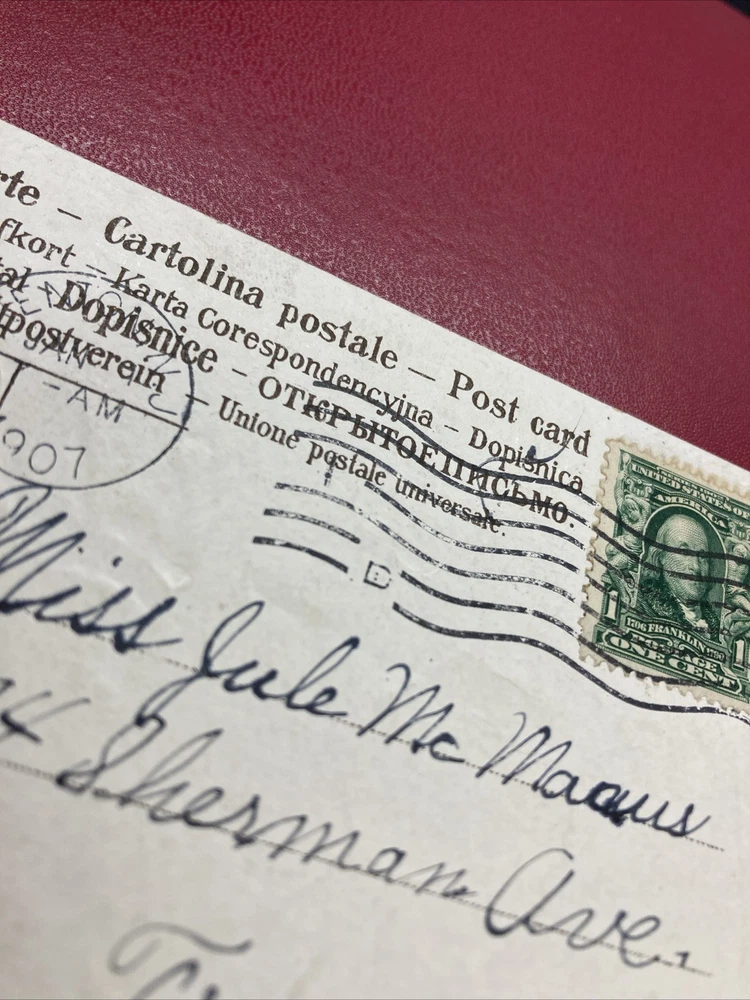 rte — Cartolina postale — Post card
fkort — Karta Corespondencyjna — Dopisnica
tal Dopisnice — ОТКРЫТОЕ ПИСЬМО.
tpostverein — Unione postale universale.
AM
- AM
1907
D
UNITED STATES OF
AMERICA
1 1
1706 FRANKLIN 1790
POSTAGE
ONE CENT
Miss Jule Mc
4 Sherman Ave.